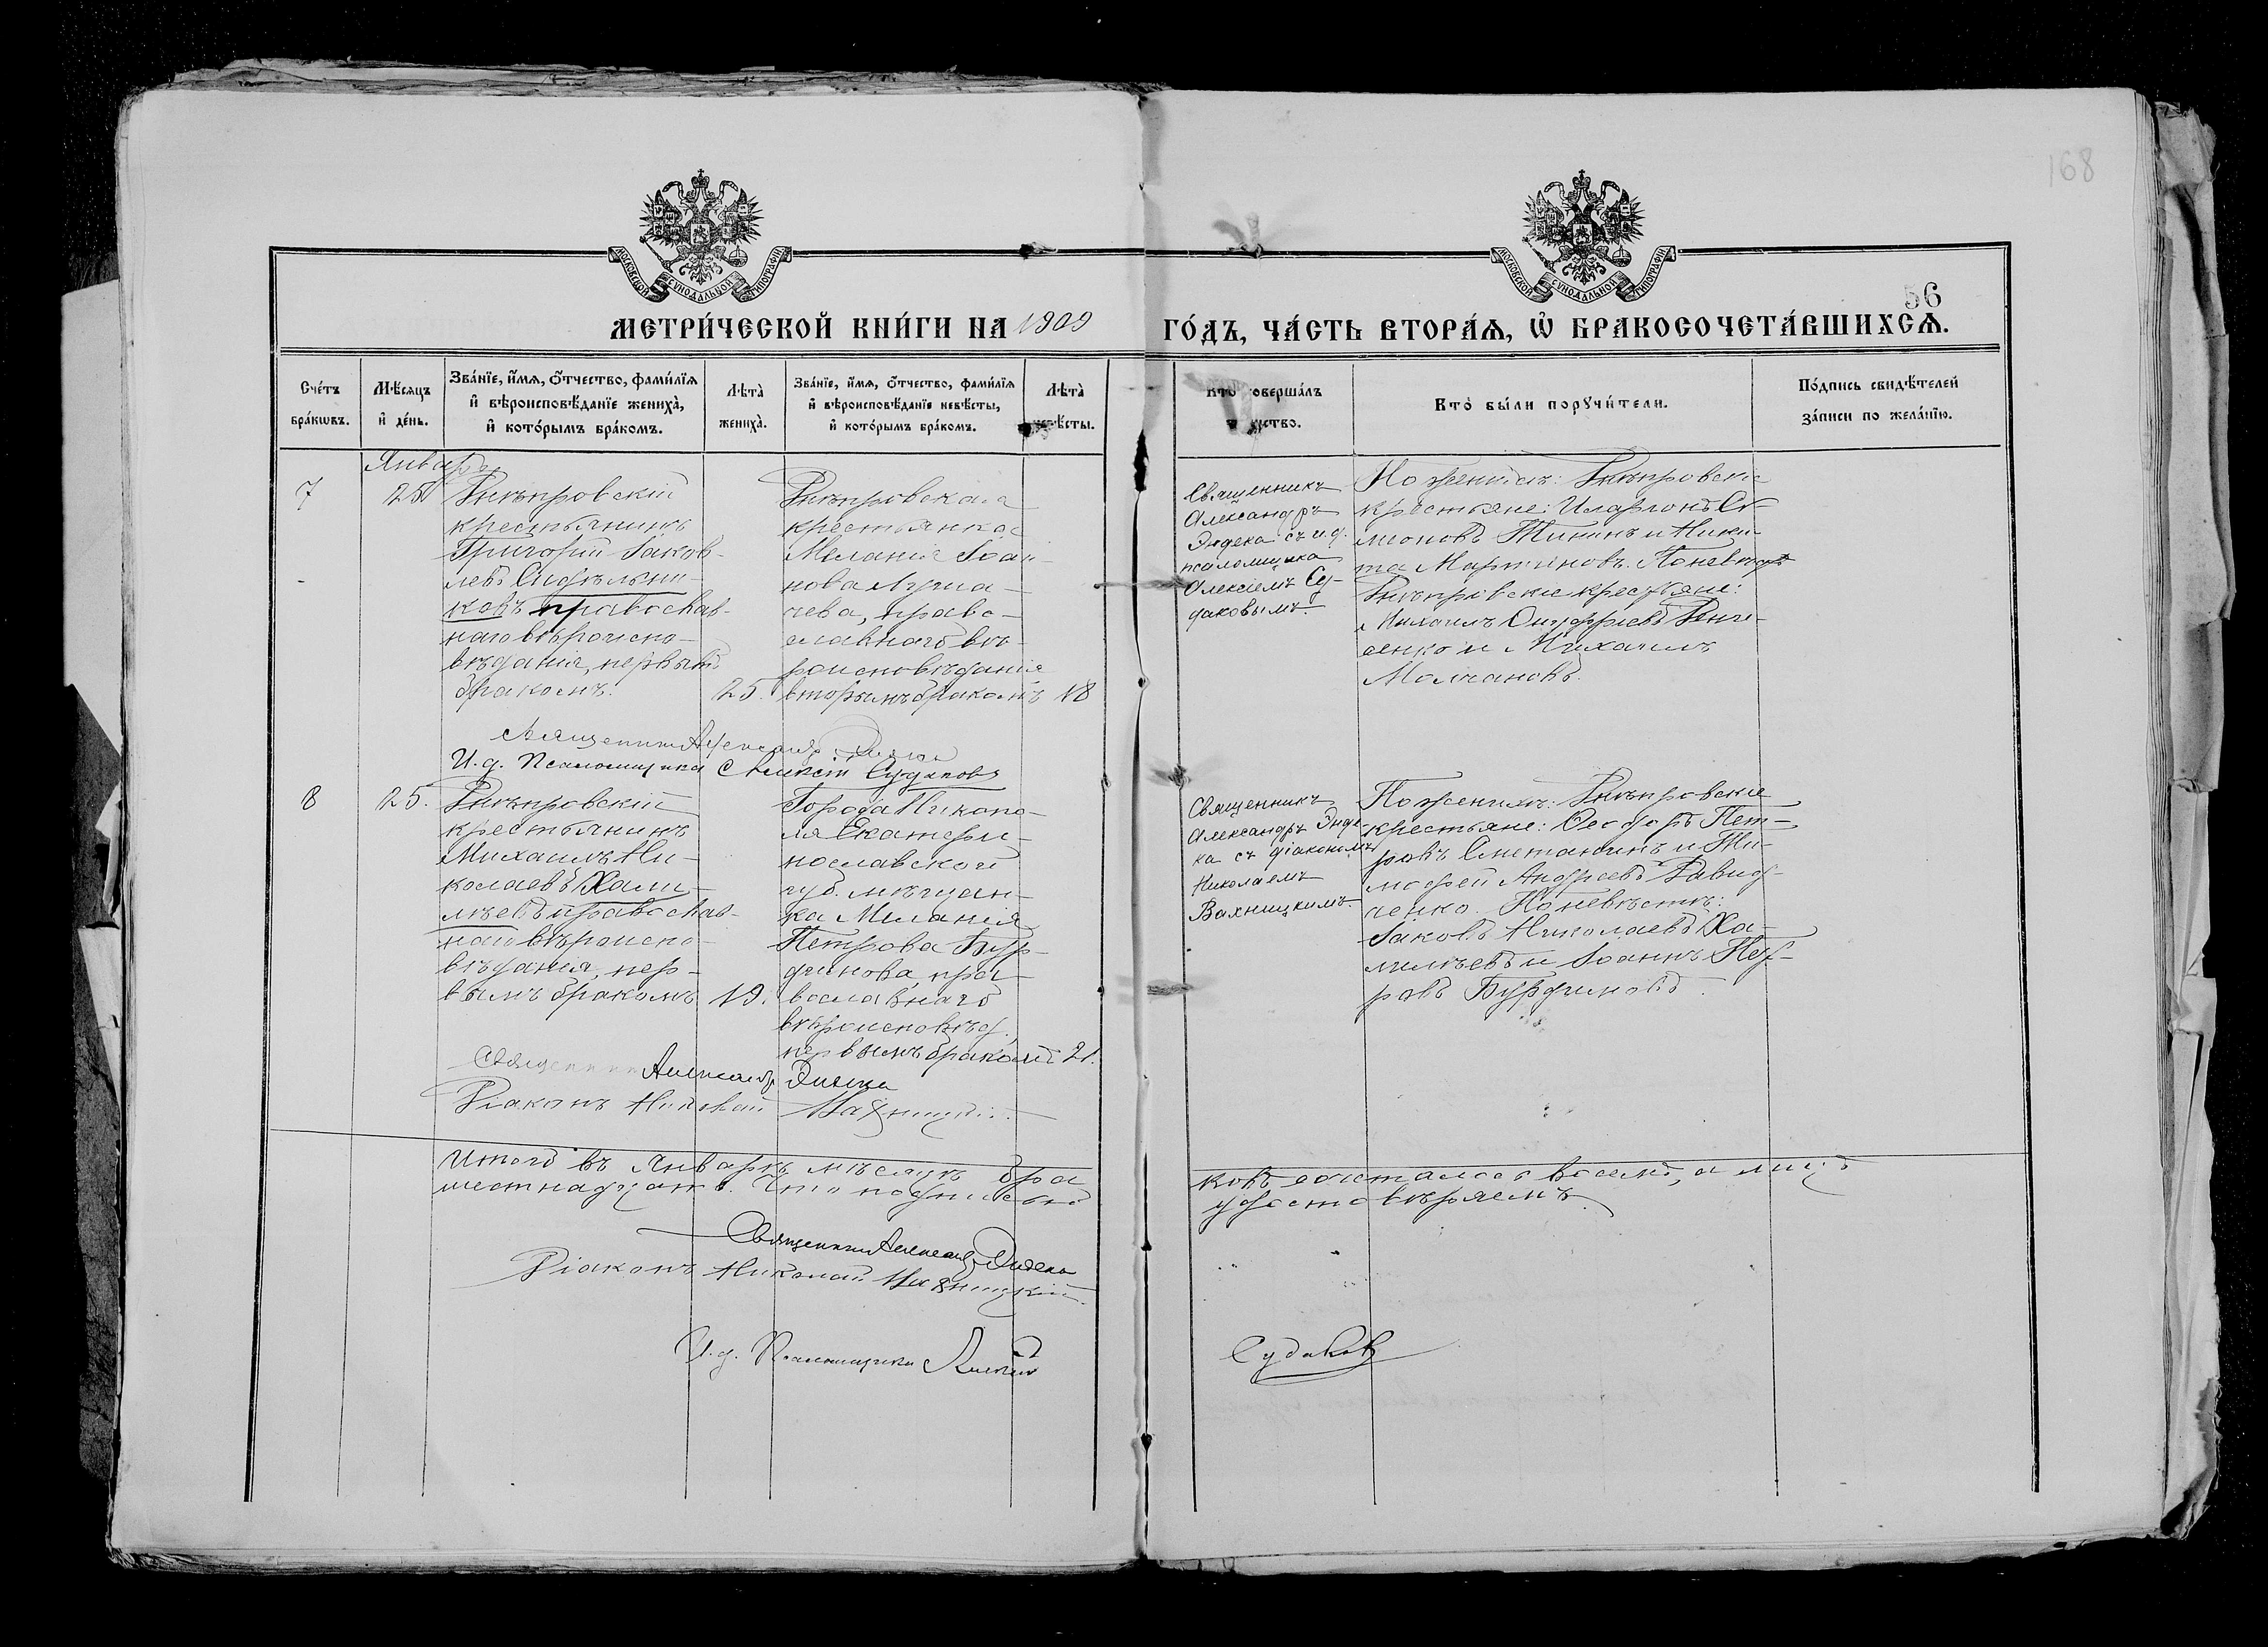 168
МОСКОВСКОЙ СѴНОДАЛЬНОЙ ТИПОГРАФІИ
МОСКОВСКОЙ СѴНОДАЛЬНОЙ ТИПОГРАФІИ
56
МЕТРИ́ЧЕСКОЙ КНИ́ГИ НА 1909
ГО́ДЪ, ЧА́СТЬ ВТОРА́Ѧ, Ѡ҆ БРАКОСОЧЕТА́ВШИХСѦ.
Сче́тъ
бра́кѡвъ.
Мѣ́сѧцъ
и҆ де́нь.
Зва́нїе, и҆́мѧ, ѻ҆́тчество, фами́лїѧ
и҆ вѣроисповѣ́данїе жениха̀,
и҆ кото́рымъ бра́комъ.
Лѣта̀
жениха̀.
Зва́нїе, и҆́мѧ, ѻ҆́тчество, фами́лїѧ
и҆ вѣроисповѣ́данїе невѣ́сты,
и҆ кото́рымъ бра́комъ.
Лѣта̀
невѣ́сты.
Кто̀ соверша́лъ
таинство.
Кто̀ бы́ли порꙋчи́тели.
По́дпись свидѣ́телей
за́писи по жела́нїю.
Январь
7
25
Днѣпровскій
крестьянинъ
Григорій Іаков-
левъ Сидѣльни-
ковъ православ-
наго вѣроиспо-
вѣданія, первымъ
бракомъ.
25.
Днѣпровская
крестьянка
Меланія Іоан-
нова
чева, право-
славнаго вѣ-
роисповѣданія
вторымъ бракомъ
18
Священникъ
Александръ
Эндека съ и.д.
псаломщика
Алексіемъ Су-
даковымъ.
По женихѣ: Днѣпровскіе
крестьяне: Иларіонъ Си-
меоновъ и Ники-
та Мартиновъ. По невѣстѣ
Днѣпровскіе крестьяне:
Михаилъ Онуфріевъ
сенко и Михаилъ
Молчановъ.
Священникъ Александръ Эндека
И. д. Псаломщика Алексій Судаковъ
8
25.
Днѣпровскій
крестьянинъ
Михаилъ Ни-
колаевъ Хали-
лѣевъ православ-
наго вѣроиспо-
вѣданія, пер-
вымъ бракомъ
19.
Города Никопо-
ля Екатери-
нославской
губ. мѣщан-
ка Меланія
Петрова Бур-
динова, пра-
вославнаго
вѣроисповѣд.
первымъ бракомъ
21.
Священникъ
Александръ Энде-
ка съ діакономъ
Николаемъ
Вахницкимъ.
По женихѣ: Днѣпровскіе
крестьяне: Ѳеодоръ Пет-
ровъ Сметанинъ и Ти-
мофей Андреевъ Давид-
ченко. По невѣстѣ:
Іаковъ Николаевъ Ха-
лилѣевъ и Іоаннъ Пет-
ровъ Бурдиновъ.
Священникъ Александръ Эндека
Діаконъ Николай Вахницкій.
Итого въ Январѣ мѣсяцѣ бра
ковъ состоялось восемь, а лицъ
шестнадцать. Что подписью
удостовѣряемъ.
Священникъ Александръ Эндека
Діаконъ Николай Вахницкій.
И. д. Псаломщика Алексій
Судаковъ